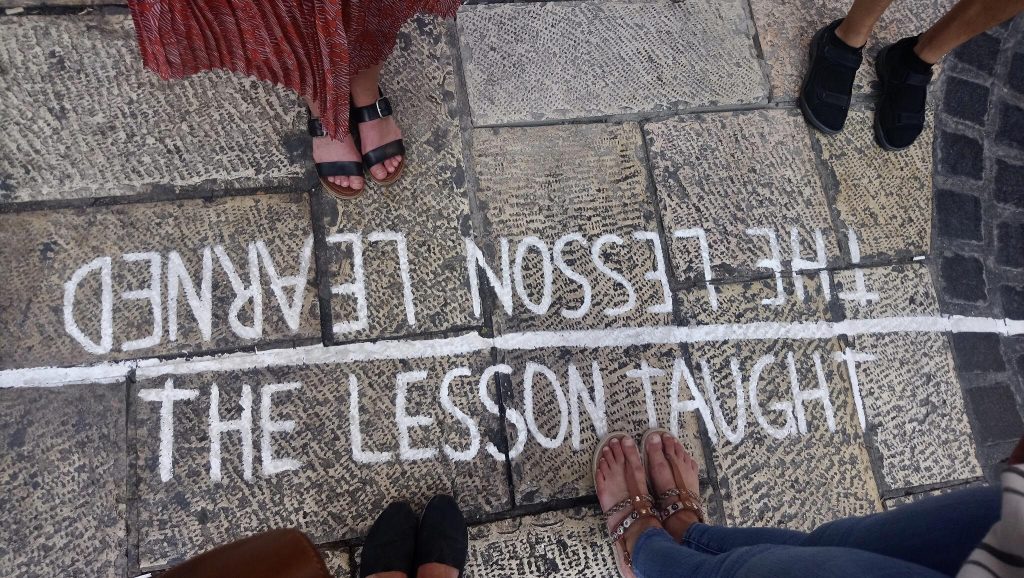 THE LESSON LEARNED
THE LESSON TAUGHT